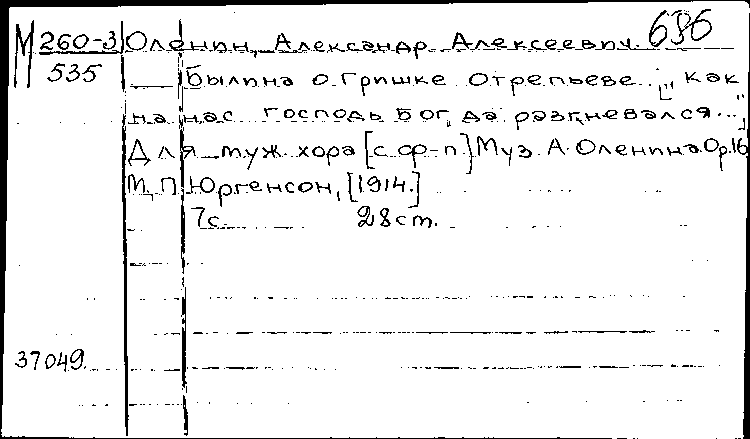 М 260-3 Оленин, Александр Алексеевич. 686
535 Былина о Гришке Отрепьеве. „Как
на нас Господь Бог, да разгневался..."
Для муж. хора [с ф-п.] Муз. А. Оленина Op. 16
М., П. Юргенсон, [1914.]
7с. 28 ст.
37049.